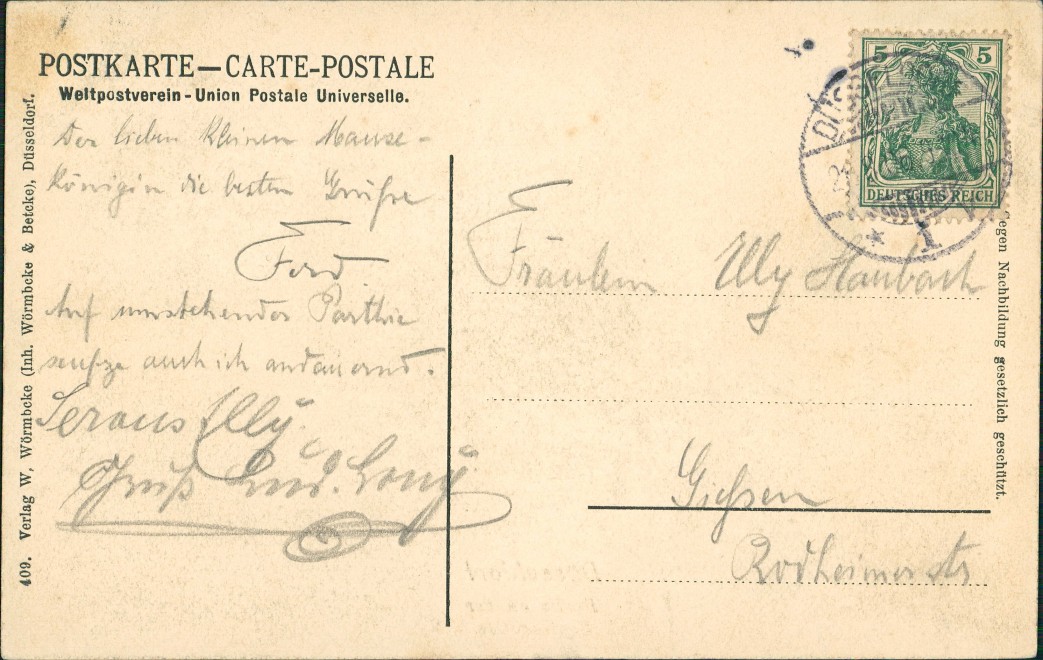 POSTKARTE—CARTE-POSTALE
Weltpostverein-Union Postale Universelle.
Der lieben kleinen Mause-
königin die besten Grüße
Ferd
Auf umstehender Parthie
seufze auch ich andauernd.
Servus Elly.
Gruß Lud. Lony
409. Verlag W, Wörmbcke (Inh. Wörmbcke & Betcke), Düsseldorf.
5 5
DEUTSCHES REICH
* 1
Fräulein Elly Haubach
Gießen
Rodheimerstr
egen Nachbildung gesetzlich geschützt.